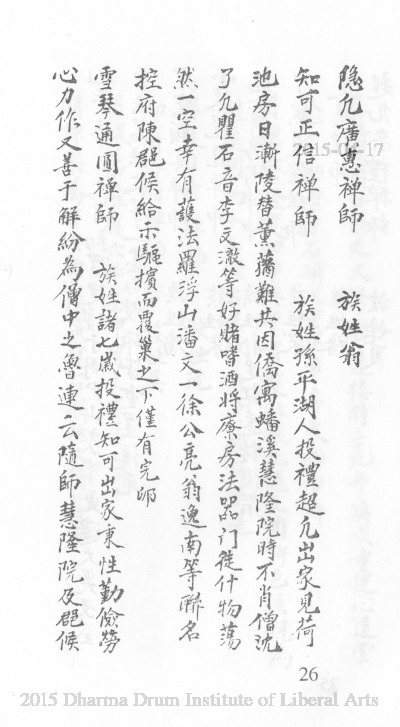 隐允廣惠禅師　族姓翁
知可正信禅師　族姓孫平湖人投禮超允出家見荷
池房日漸陵替薰蕕難共因僑寓蟠溪慧隆院時不肖僧沈
了允瞿石音李文澈等好賭嗜酒將寮房法器门徒什物蕩
然一空幸有護法羅浮山潘文一徐公亮翁逸南等聯名
控府陳郡候給示驅擯而覆巢之下僅有完卵
雪琴通圓禅師　族姓諸七歲投禮知可出家秉性勤儉勞
心力作又善于解紛為僧中之魯連云隨師慧隆院及郡候
26
2015 Dharma Drum Institute of Liberal Arts